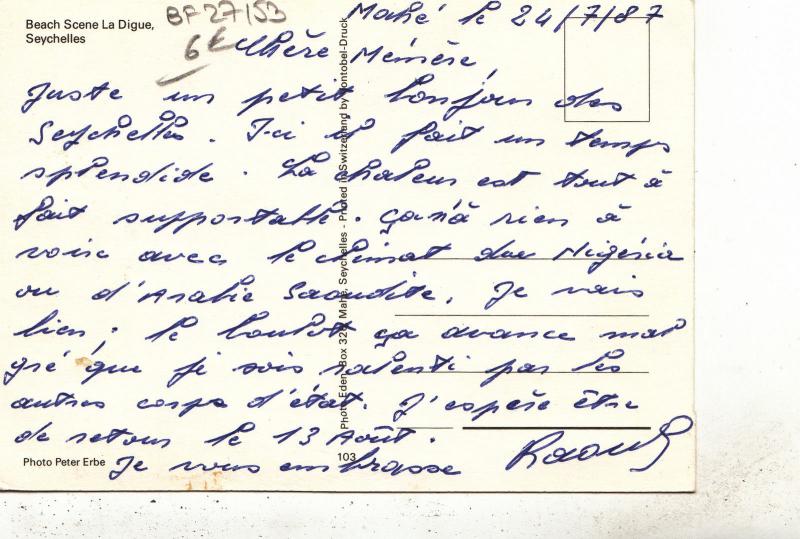 Beach Scene La Digue,
Seychelles
BF 27/53
6€
Mahé le 24/7/87
Chère Mémère,
Juste un petit bonjour des
Seychelles. Ici il fait un temps
splendide. La chaleur est tout à
fait supportable. ça n'a rien à
voir avec le climat du Nigéria
ou d'Arabie Saoudite. Je vais
bien; le boulot ça avance mal
gré que je sois ralenti par les
autres corps d'état. J'espère être
de retour le 13 Août.
Je vous embrasse
Raoul
Photo Peter Erbe
103
Photo Eden, Box 32, Mahé, Seychelles - Printed in Switzerland by Montobel-Druck